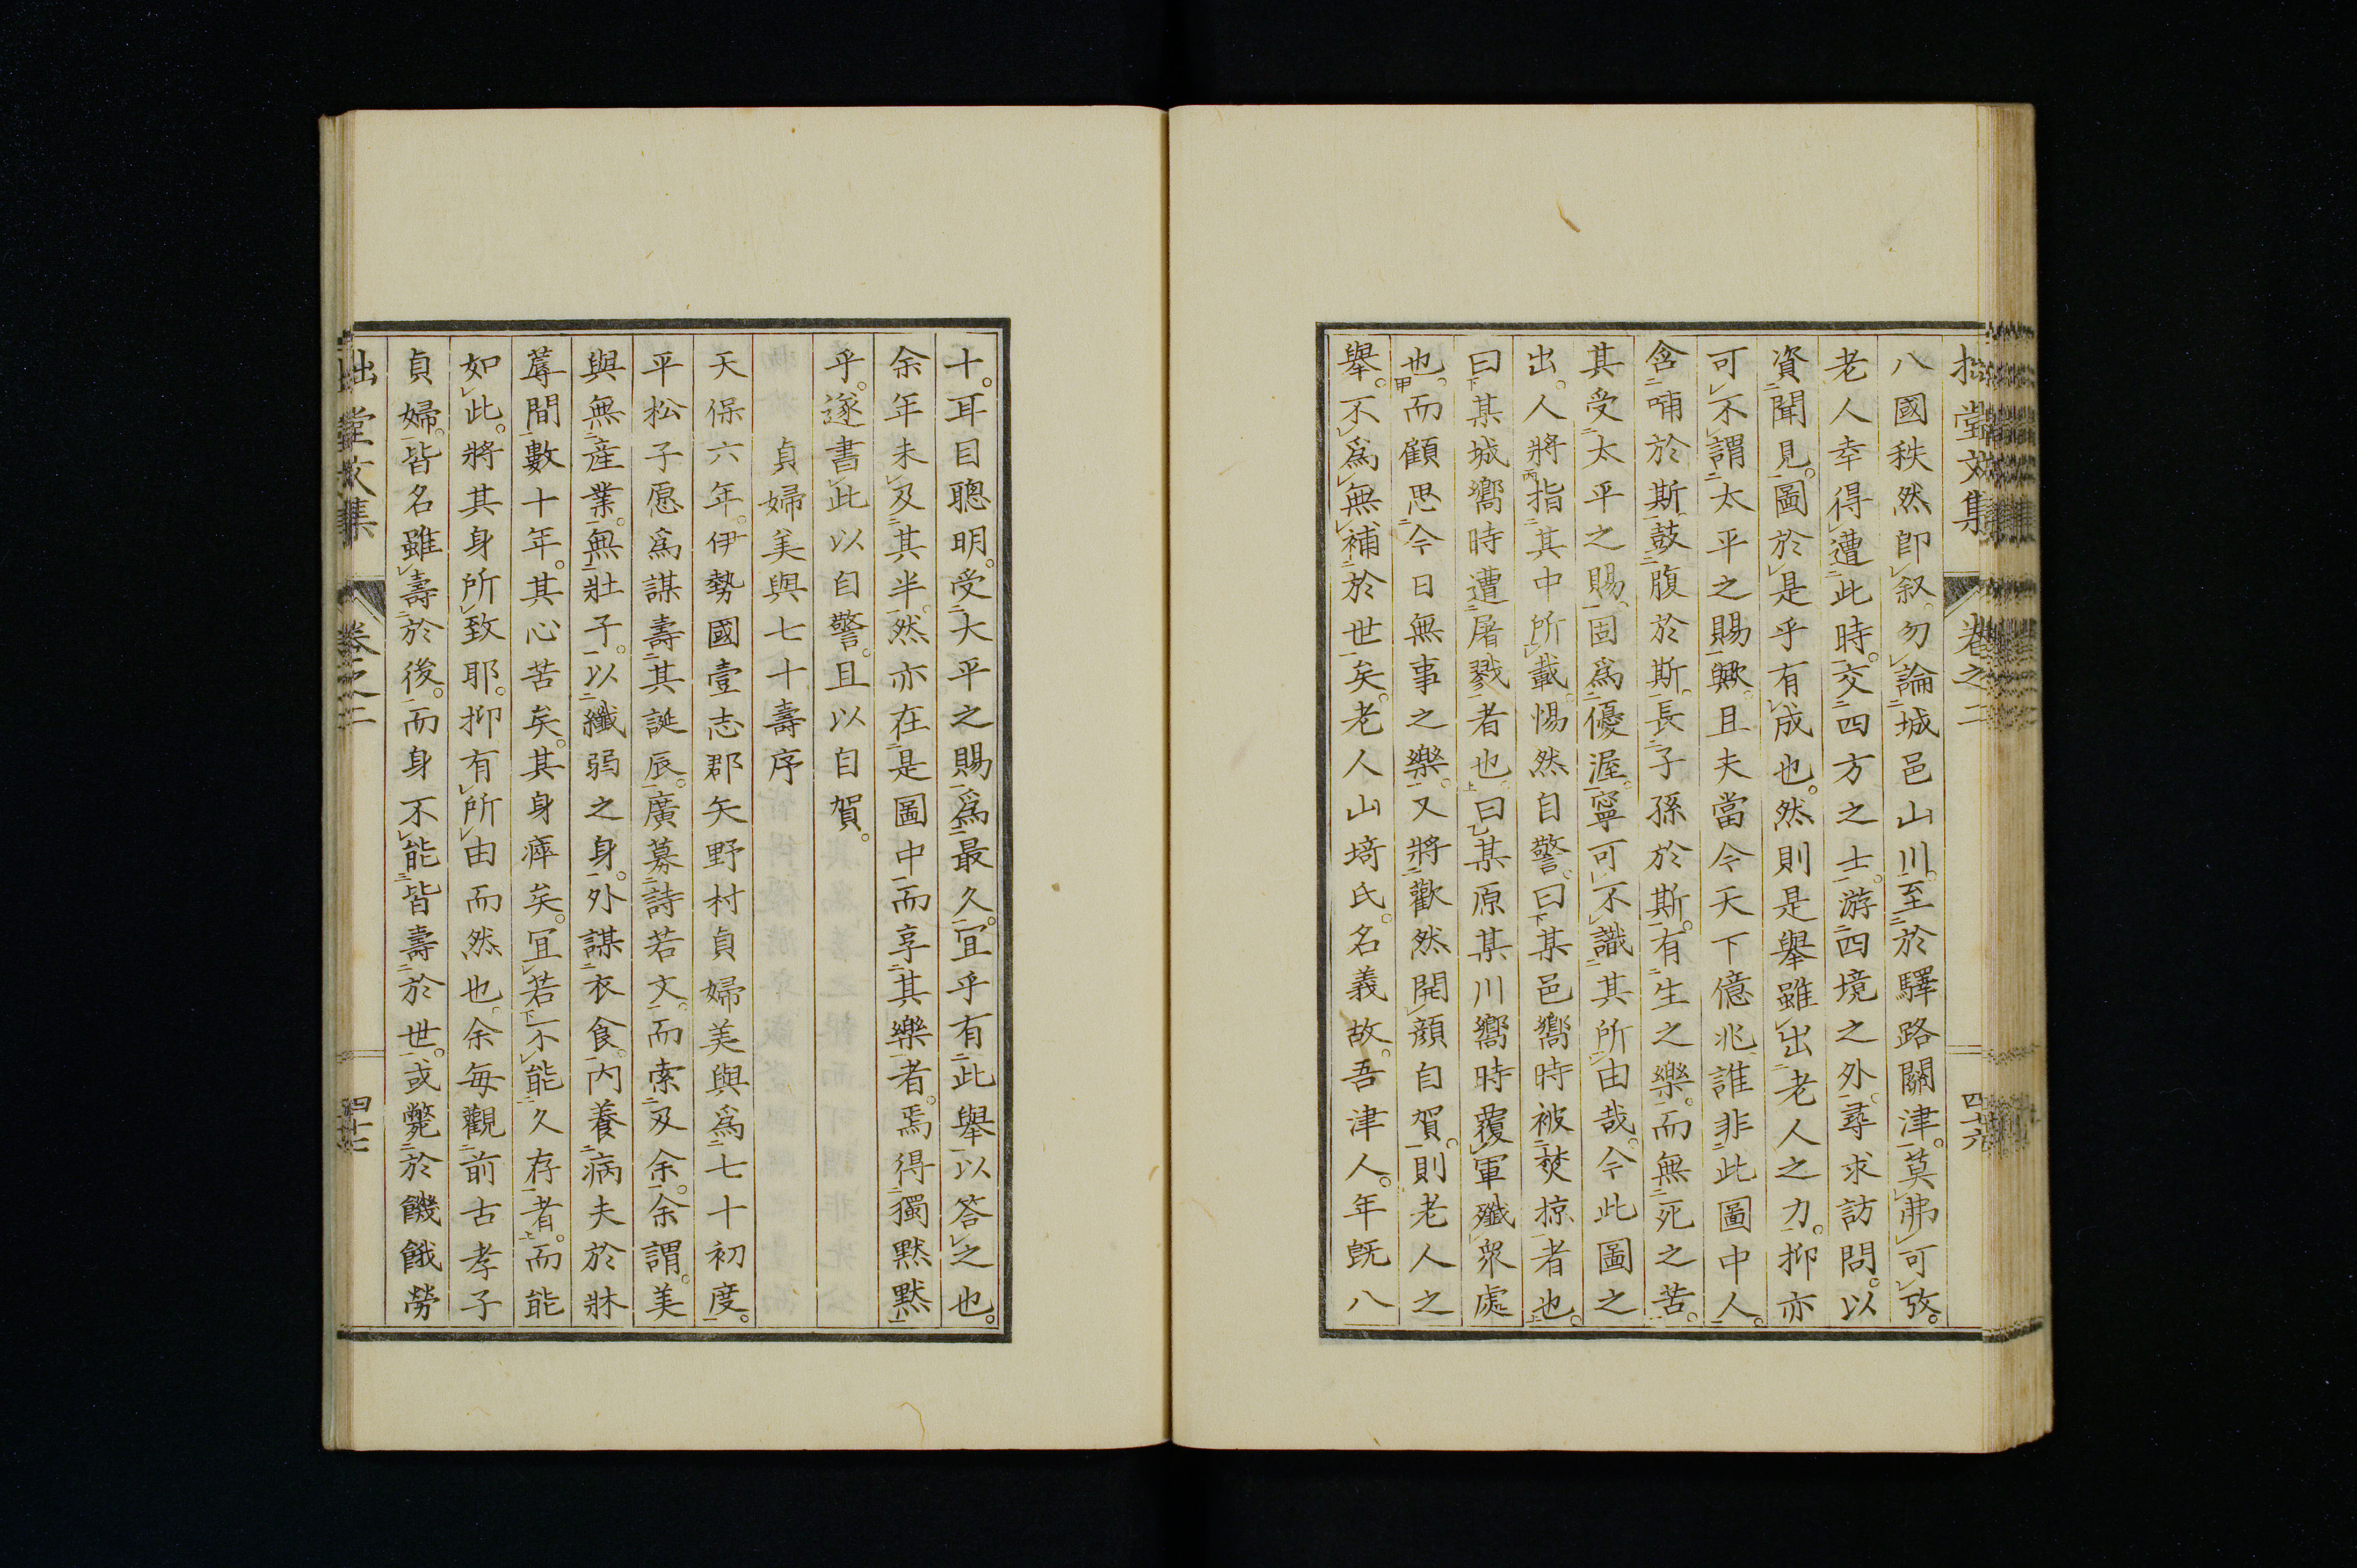 拙堂文集 卷之二 四十六
八國秩然卽叙。勿論城邑山川。至於驛路關津。莫弗可攷。
老人幸得遭此時。交四方之士。游四境之外。尋求訪問。以
資聞見。圖於是乎有成也。然則是舉雖出老人之力。抑亦
可不謂太平之賜歟。且夫當今天下億兆誰非此圖中人。
含哺於斯。鼓腹於斯。長子孫於斯。有生之樂。而無死之苦。
其受太平之賜。固爲優渥。寧可不識其所由哉。今此圖之
出。人將指其中所載。惕然自警。曰某邑嚮時被焚掠者也。
曰某城嚮時遭屠戮者也。曰某原某川嚮時覆軍殲衆處
也。而顧思今日無事之樂。又將歡然開顏自賀。則老人之
舉。不爲無補於世矣。老人山埼氏。名義故。吾津人。年旣八
十。耳目聰明。受大平之賜爲最久。宜乎有此舉以答之也。
余年未及其半。然亦在是圖中而享其樂者。焉得獨默默
乎。遂書此以自警。且以自賀。
貞婦美與七十壽序
天保六年。伊勢國壹志郡矢野村貞婦美與爲七十初度。
平松子愿爲謀壽其誕辰。廣募詩若文。而索及余。余謂。美
與無產業。無壯子。以纖弱之身。外謀衣食。內養病夫於牀
蓐間數十年。其心苦矣。其身瘁矣。宜若不能久存者。而能
如此。將其身所致耶。抑有所由而然也。余每觀前古孝子
貞婦。皆名雖壽於後。而身不能皆壽於世。或斃於饑餓勞
拙堂文集 卷之二 四十七